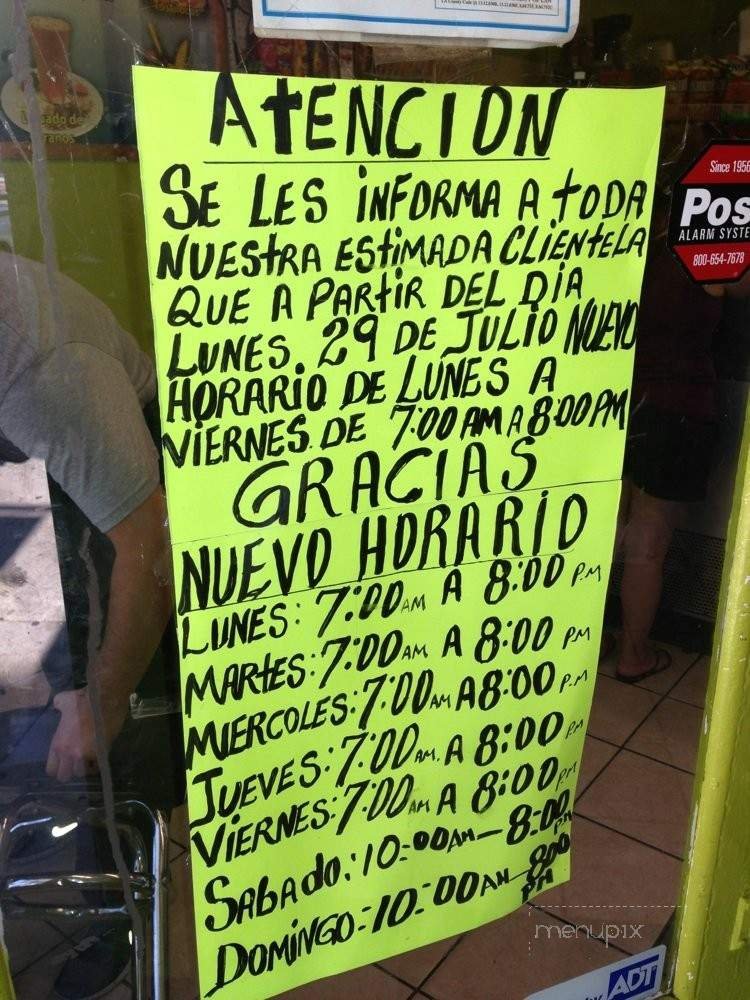 ATENCION
SE LES INFORMA A TODA
NUESTRA ESTIMADA CLIENTELA
QUE A PARTIR DEL DIA
LUNES 29 DE JULIO NUEVO
HORARIO DE LUNES A
VIERNES DE 7:00 AM A 8:00 PM
GRACIAS
NUEVO HORARIO
LUNES: 7:00 AM A 8:00 P.M
MARTES: 7:00 AM A 8:00 PM
MIERCOLES: 7:00 AM A 8:00 P.M
JUEVES: 7:00 AM. A 8:00 P.M
VIERNES: 7:00 AM A 8:00 P.M
SABADO: 10:00 AM - 8:00 P.M
DOMINGO: 10:00 AM - 8:00 PM
Since 1956
Pos
ALARM SYSTE
800-654-7678
ADT
menupix